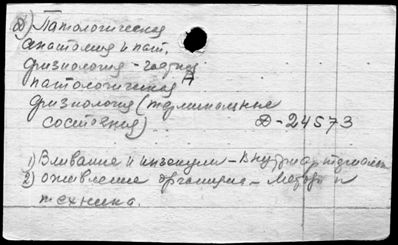 2) Патологическая
анатомия и пат.
физиология - 
патологическая
физиология (терминальные
состояния) Д-24573
1) Вливание и инъекции - внутриартериальн
2) оживление организма - методы и
техника.